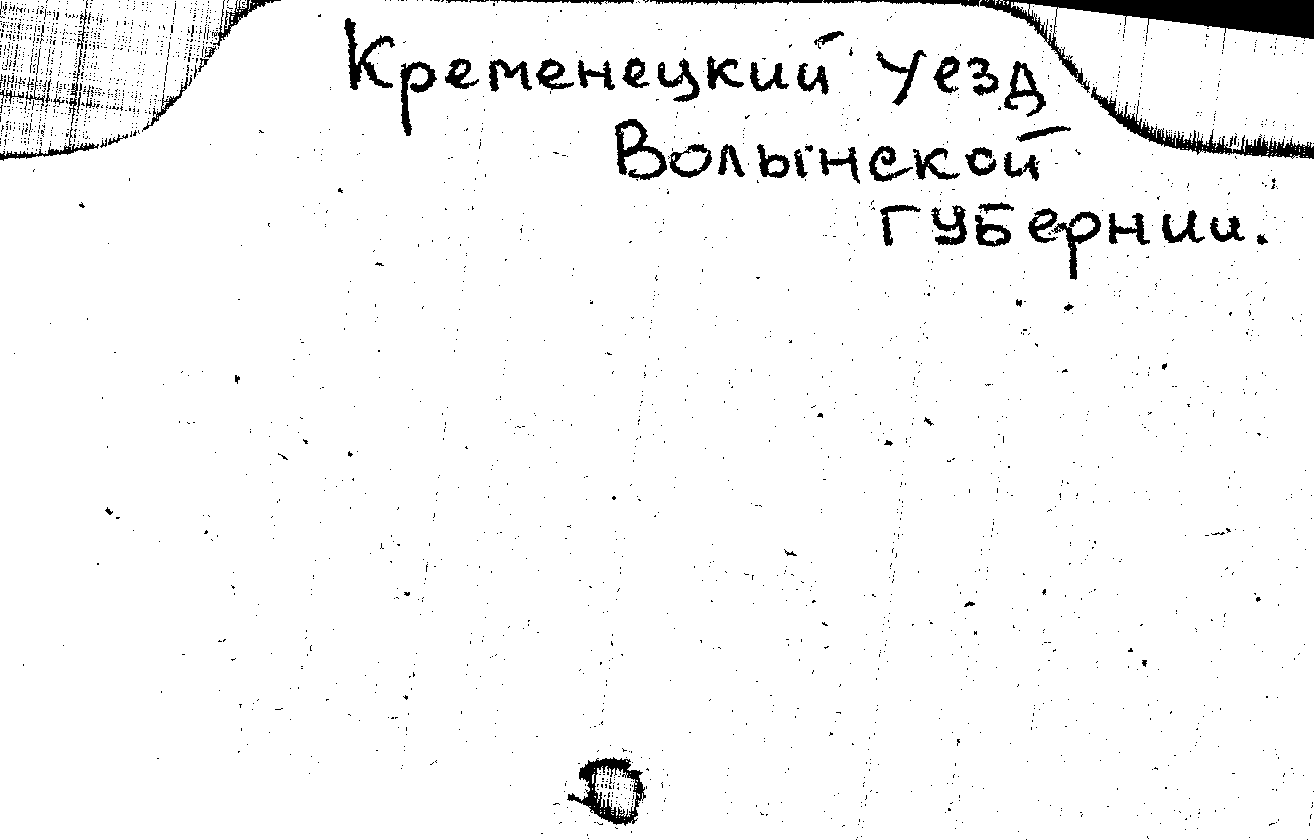 Кременецкий уезд
Волынской
губернии.